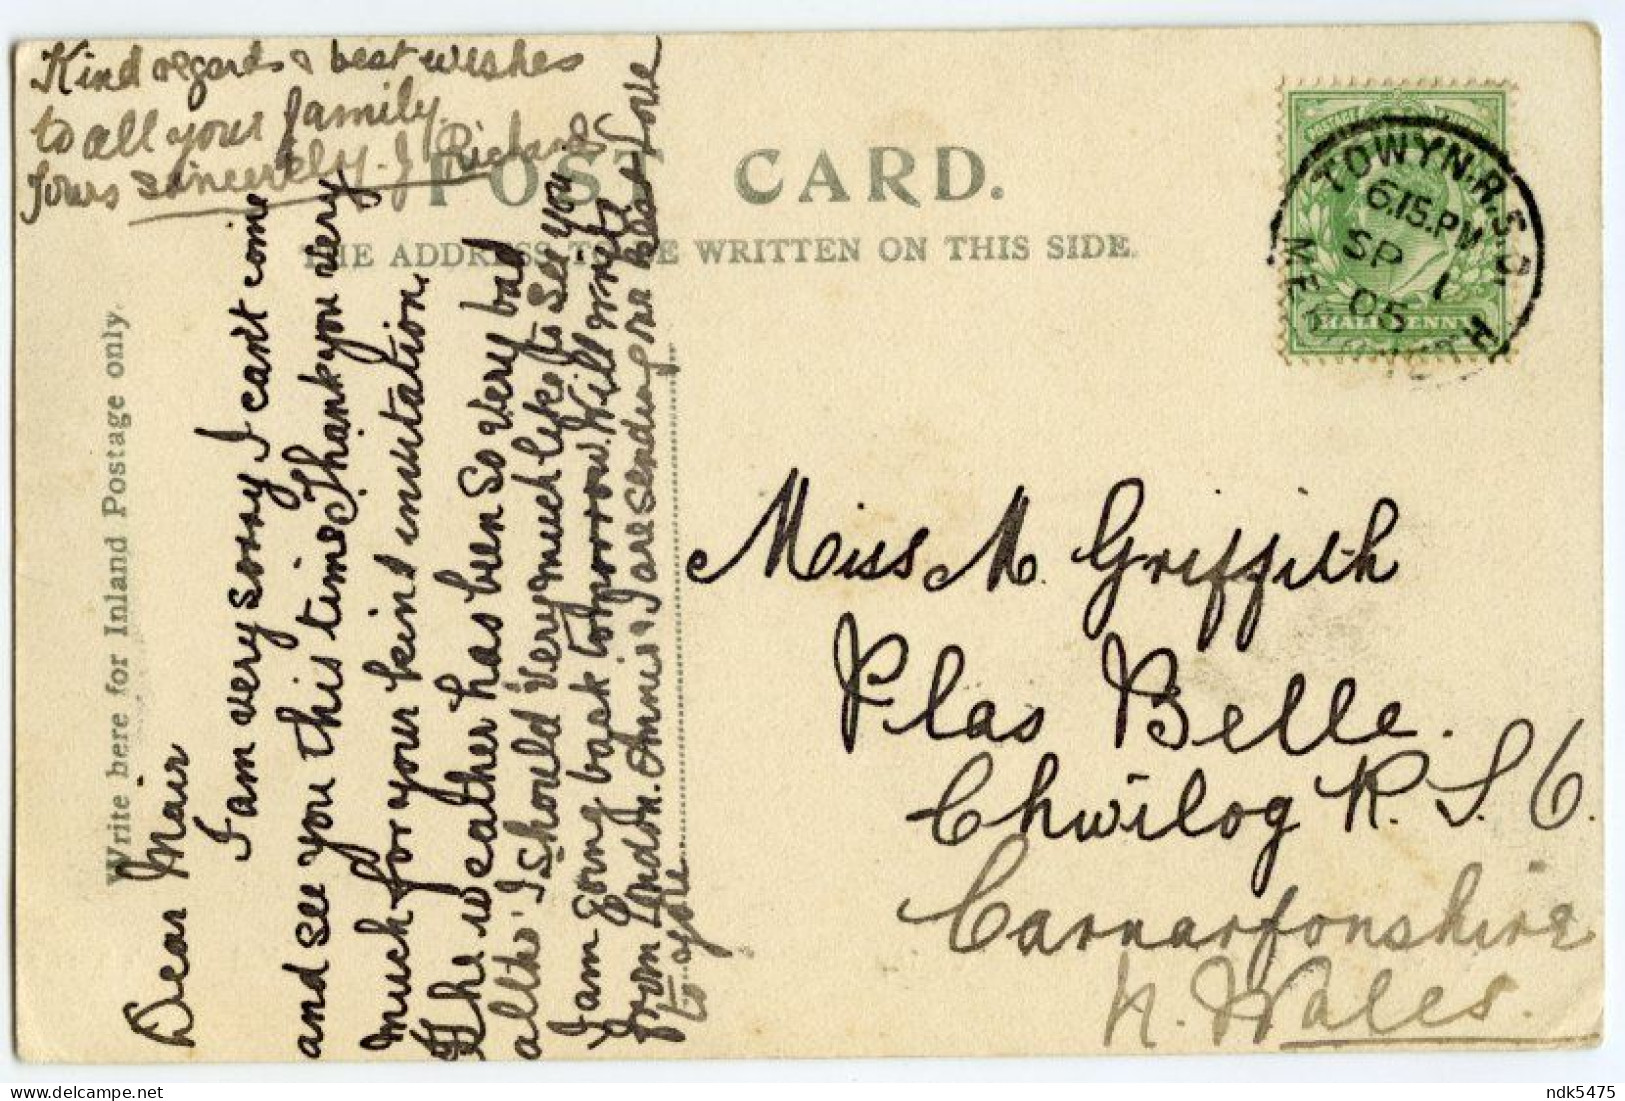 Kind regards & best wishes
to all your family.
Yours sincerely. J Richards
POST CARD.
THE ADDRESS TO BE WRITTEN ON THIS SIDE.
Write here for Inland Postage only.
Dear Mair
I am very sorry I can't come
and see you this time Thank you very
much for your kind invitation.
The weather has been so very bad
altho' I should very much like to see you
I am going back tomorrow. Will write
from London. Annie & I are sending our best love
to you
POSTAGE
HALFPENNY
TOWYN.R.S.O.
6.15.PM
SP 1
05
Miss M. Griffith
Plas Belle.
Chwilog R.S.O.
Carnarfonshire
N. Wales.
ndk5475